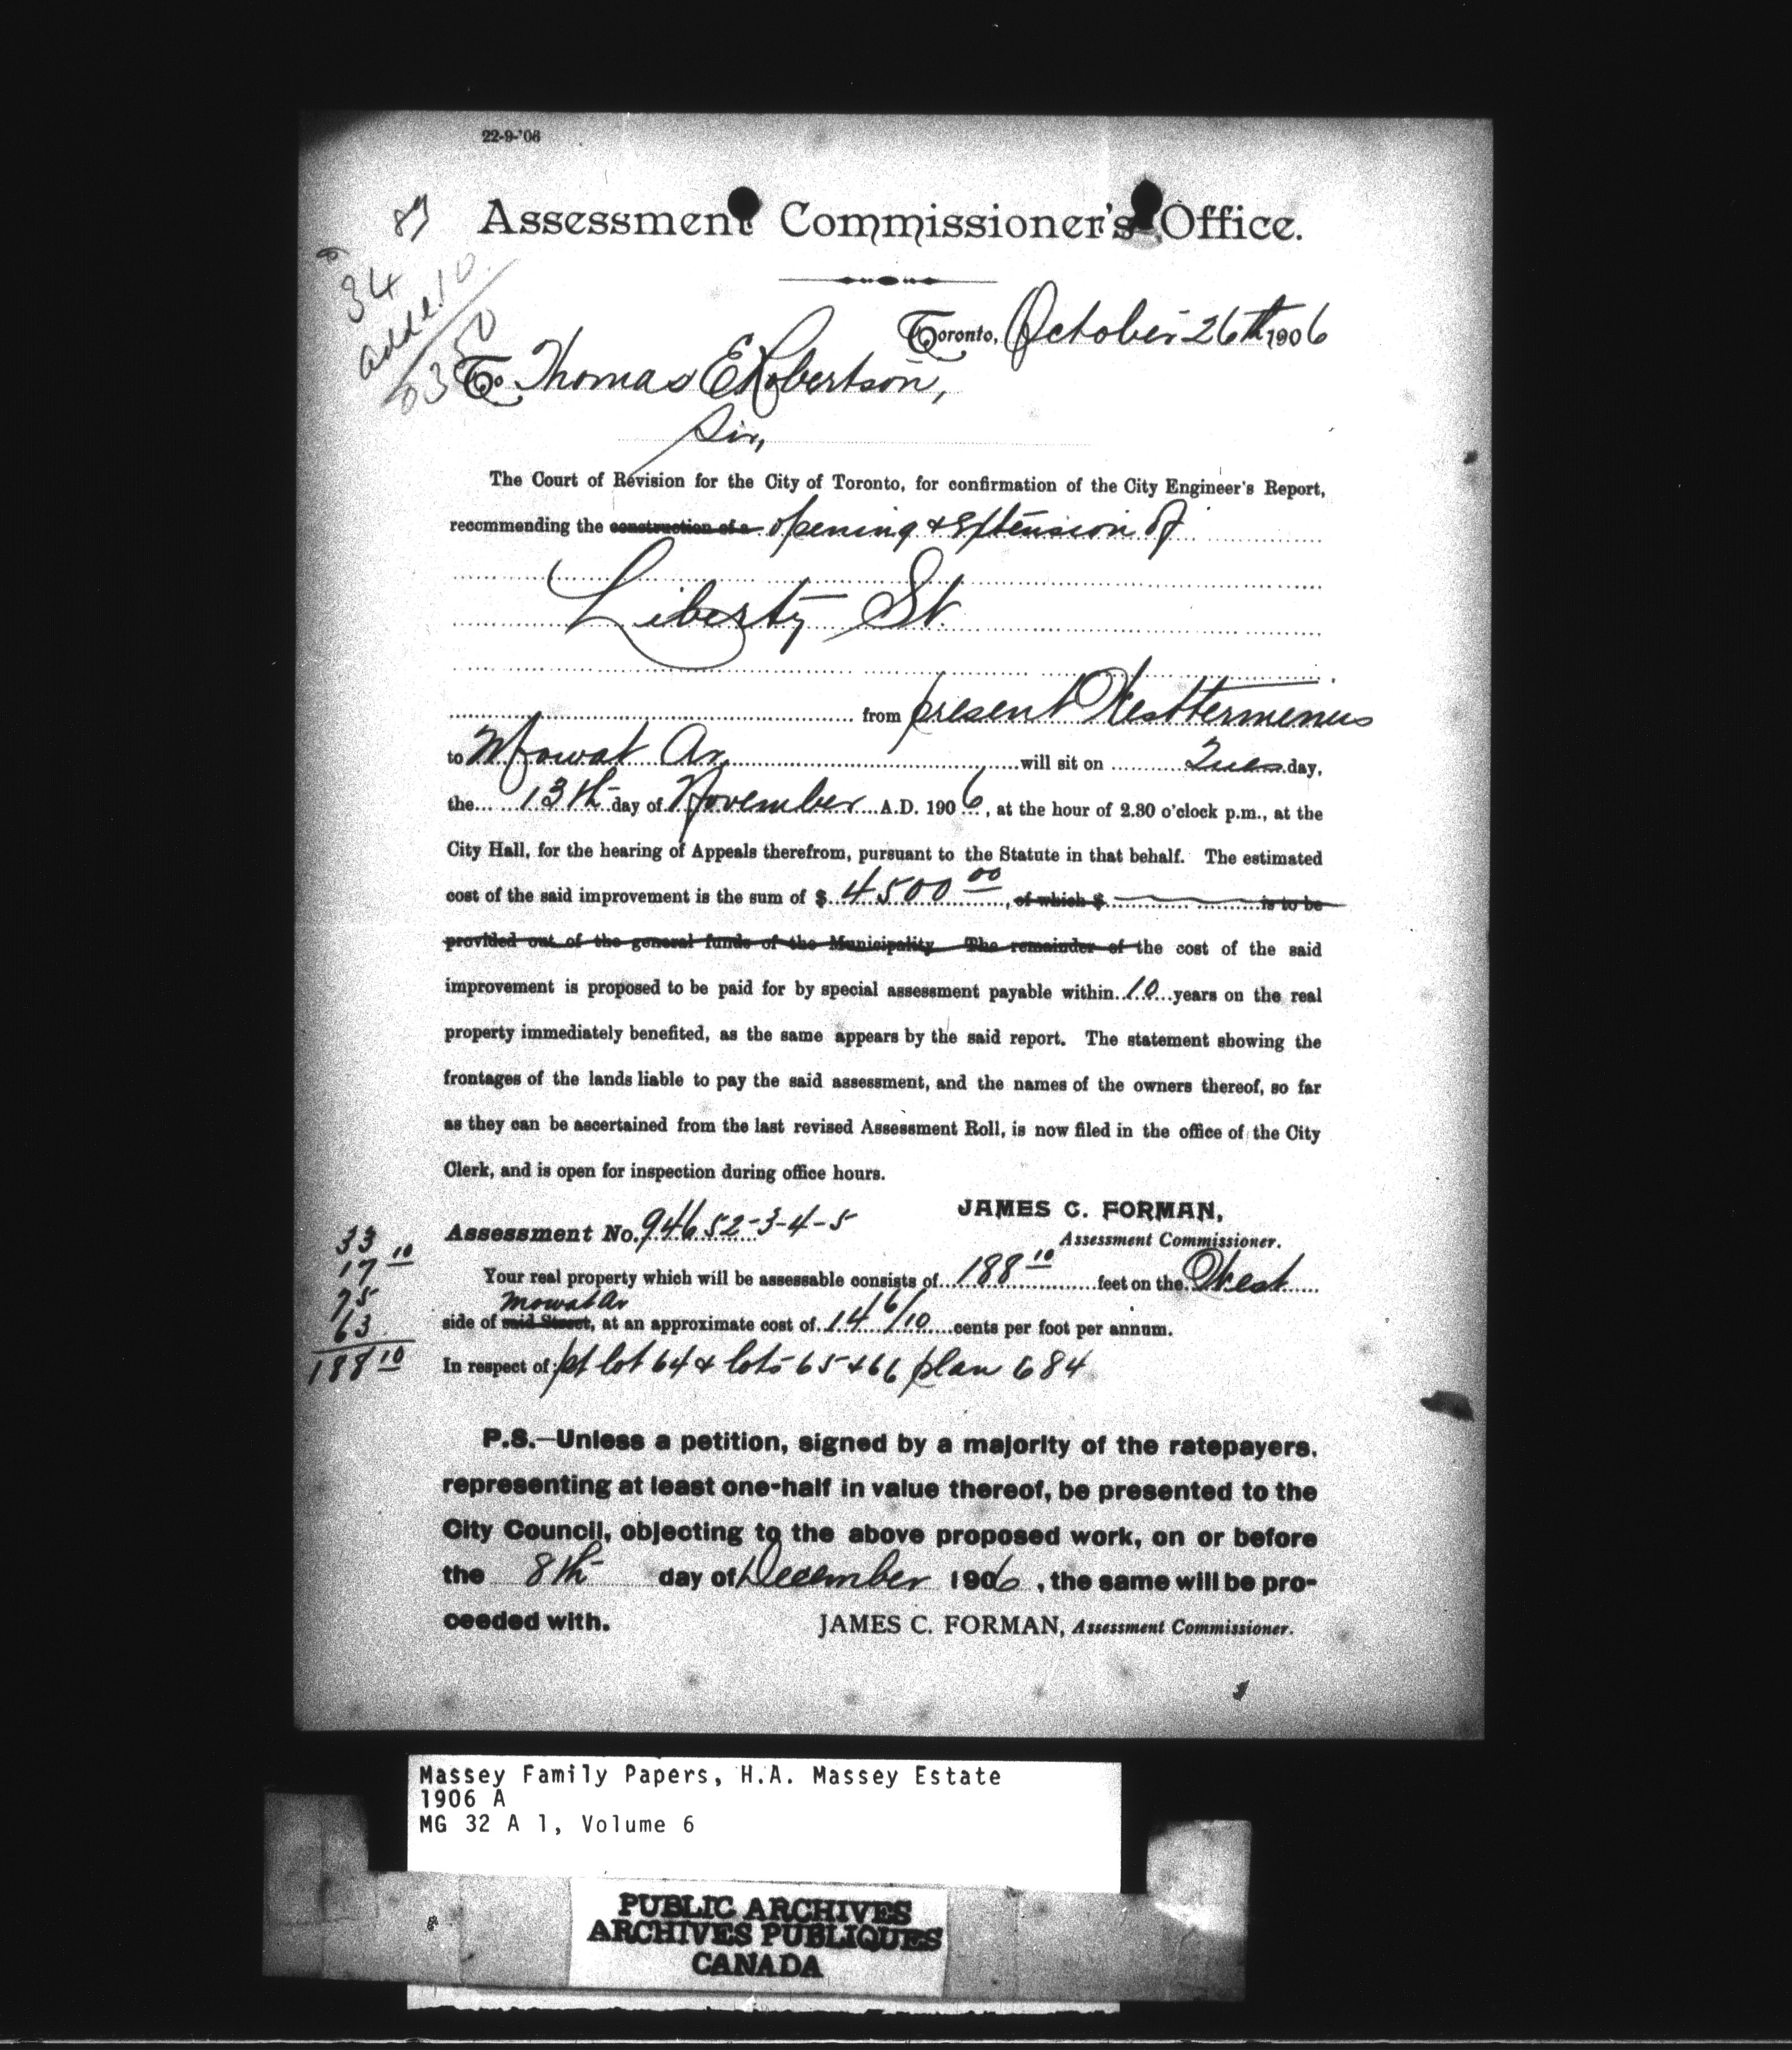 22-9-'06
89
Assessment Commissioner's Office.
34
add 10
Toronto, October 26th 1906
To Thomas E Robertson,
Sir,
The Court of Revision for the City of Toronto, for confirmation of the City Engineer's Report,
recommending the construction of a opening & Extension of
Liberty St.
from present West termenus
to Mowat Av. will sit on Tuesday,
the 13th day of November A.D. 1906, at the hour of 2.30 o'clock p.m., at the
City Hall, for the hearing of Appeals therefrom, pursuant to the Statute in that behalf. The estimated
cost of the said improvement is the sum of $ 4500 00, of which $ is to be
provided out of the general funds of the Municipality The remainder of the cost of the said
improvement is proposed to be paid for by special assessment payable within 10 years on the real
property immediately benefited, as the same appears by the said report. The statement showing the
frontages of the lands liable to pay the said assessment, and the names of the owners thereof, so far
as they can be ascertained from the last revised Assessment Roll, is now filed in the office of the City
Clerk, and is open for inspection during office hours.
JAMES C. FORMAN,
Assessment No. 94652-3-4-5
Assessment Commissioner.
33
17 10
75
63
188 10
Your real property which will be assessable consists of 188 10 feet on the West
Mowat Av
side of said Street, at an approximate cost of 14 6/10 cents per foot per annum.
In respect of pt lot 64 & lots 65 & 66 plan 684
P.S.—Unless a petition, signed by a majority of the ratepayers,
representing at least one-half in value thereof, be presented to the
City Council, objecting to the above proposed work, on or before
the 8th day of December 1906, the same will be pro-
ceeded with.
JAMES C. FORMAN, Assessment Commissioner.
Massey Family Papers, H.A. Massey Estate
1906 A
MG 32 A 1, Volume 6
PUBLIC ARCHIVES
ARCHIVES PUBLIQUES
CANADA